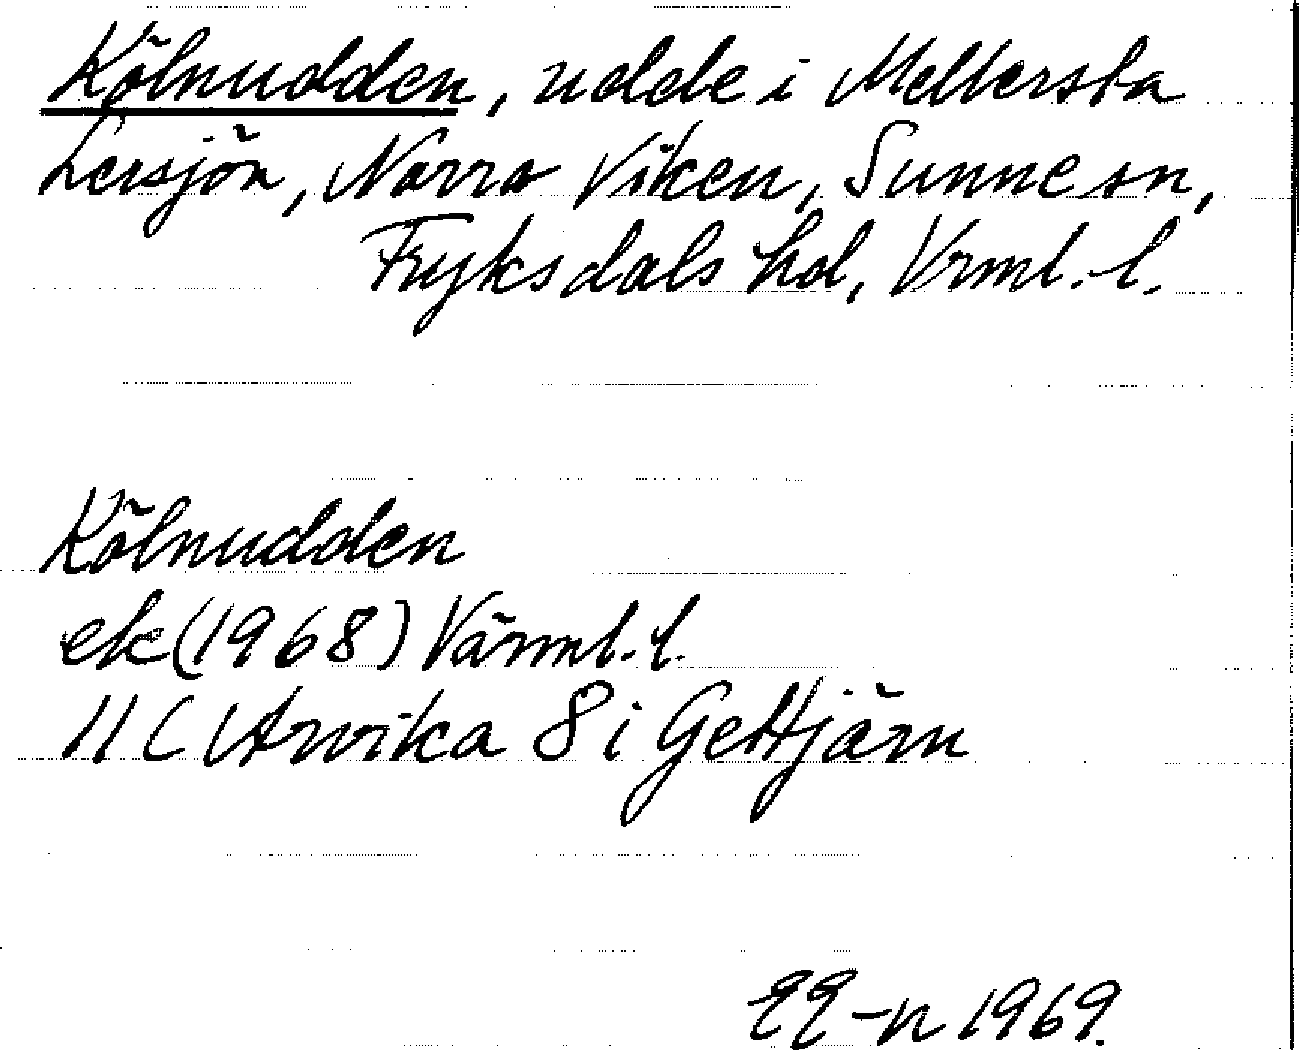 Kölnudden, udde i Mellersta
Lersjön, Norra Viken, Sunne sn,
Fryksdals hd, Vrml. l.
Kölnudden
ek (1968) Värml. l.
11 C Arvika 8 i Gettjärn
EE-n 1969.